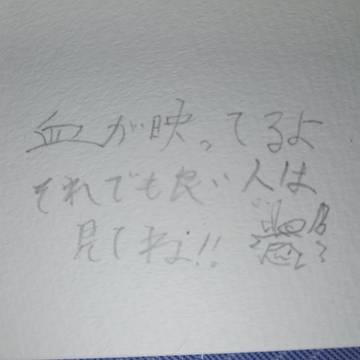 血が映ってるよ
それでも良い人は
見てね!!